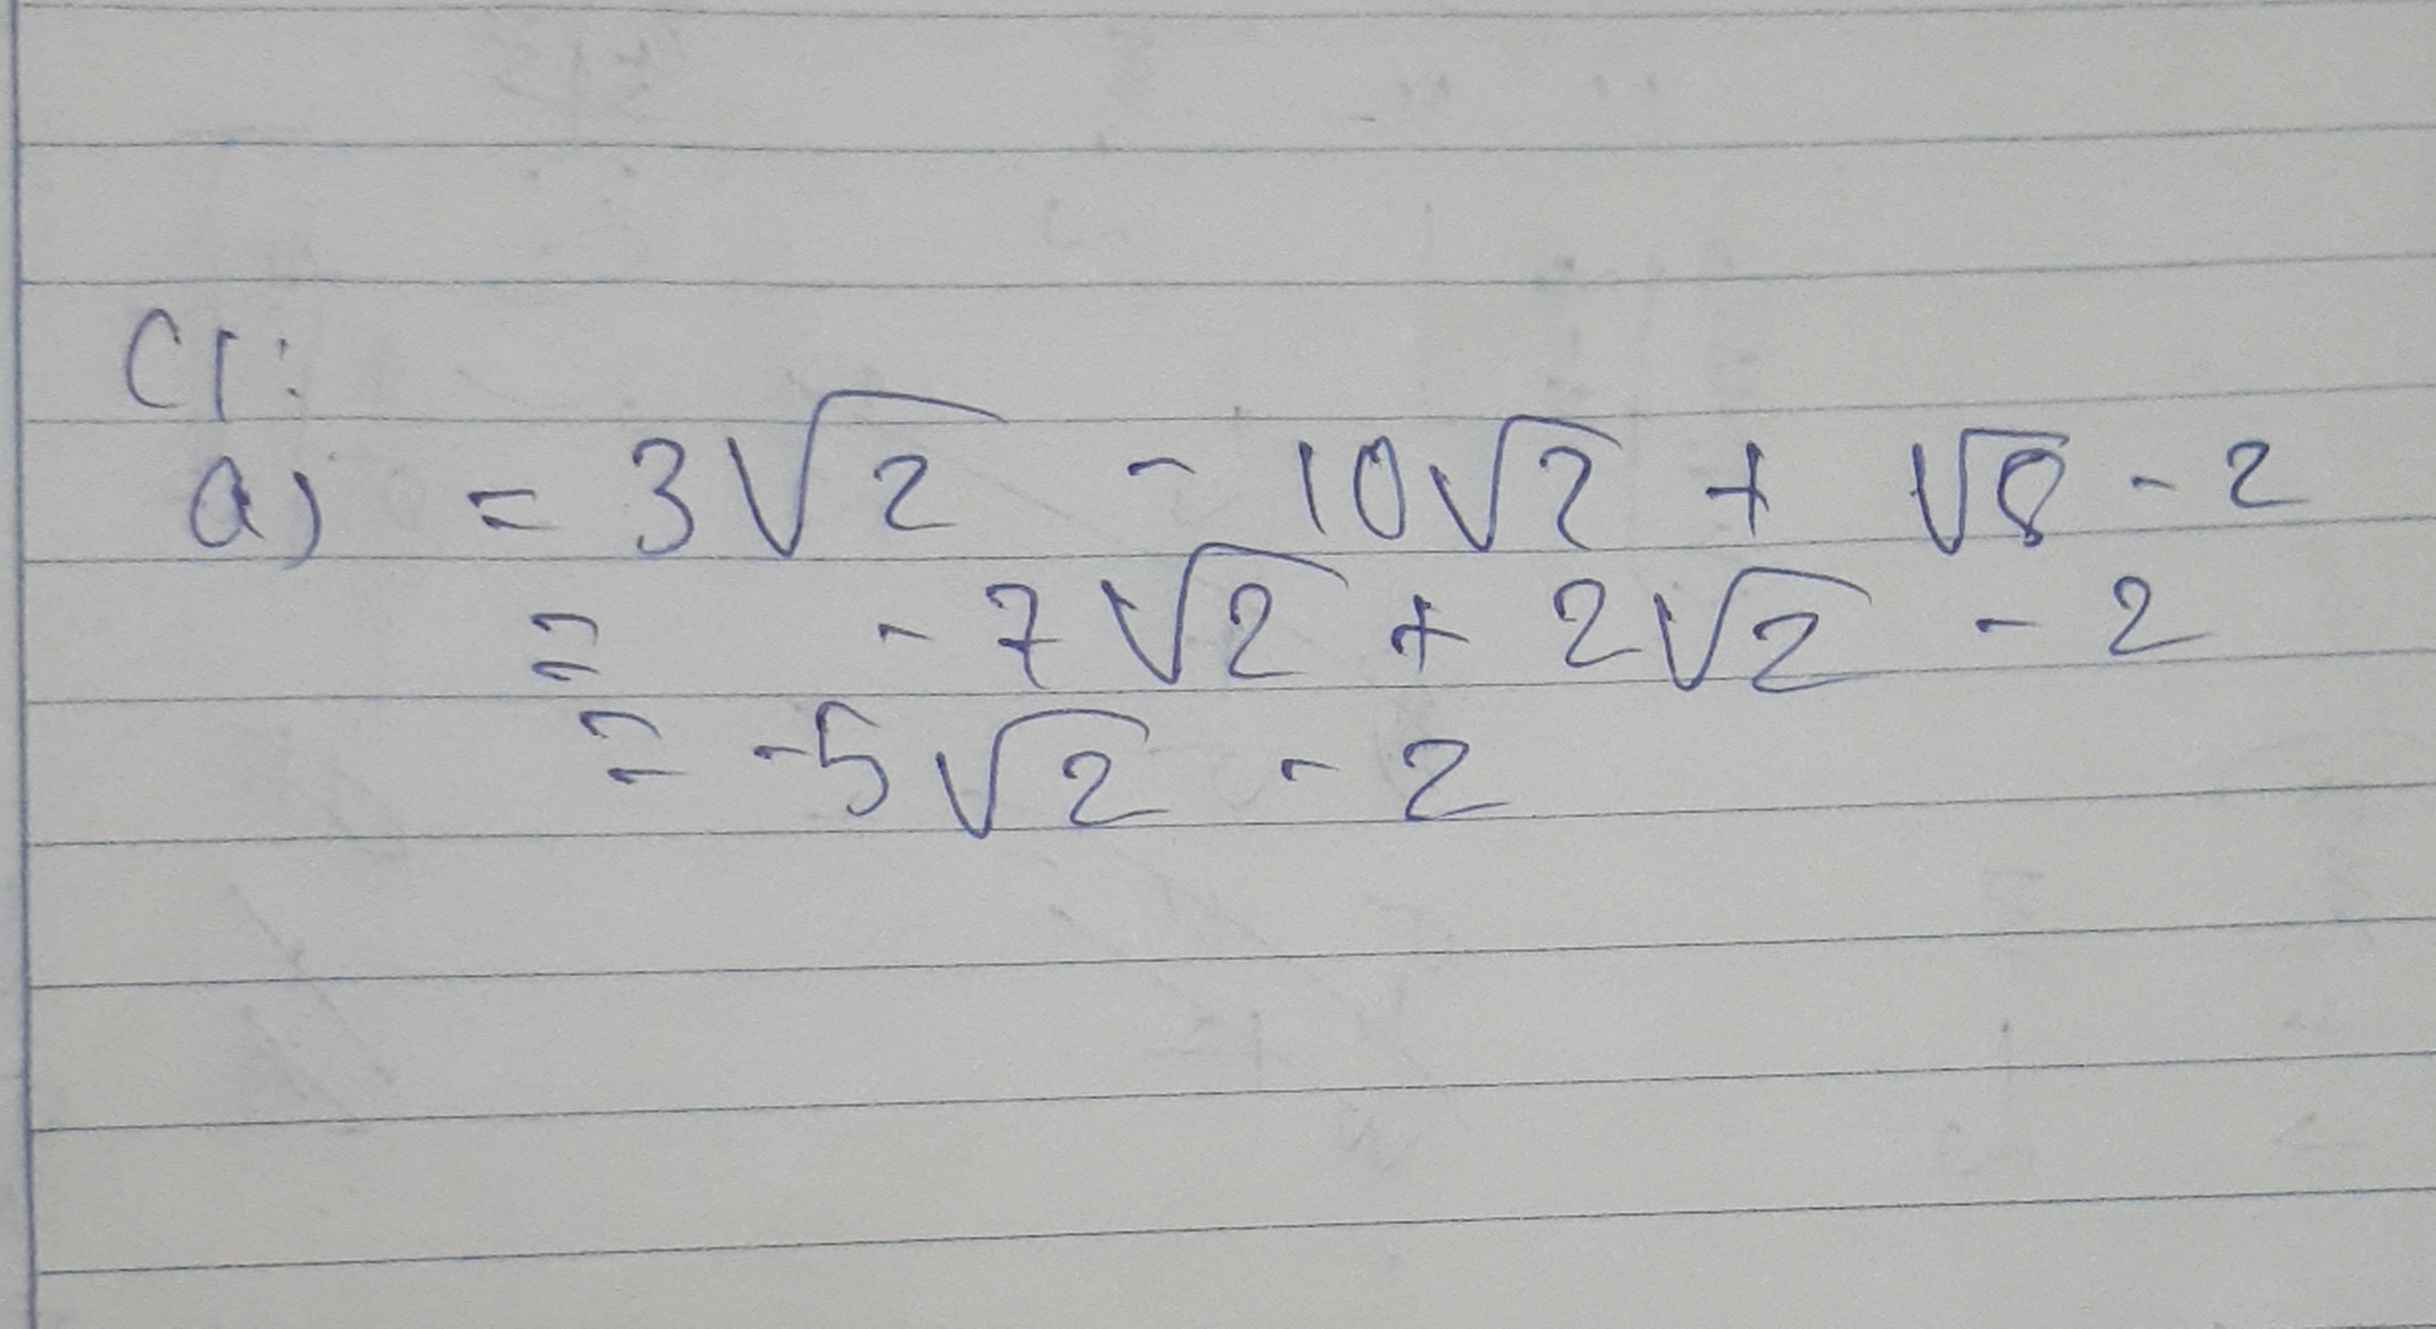 C1:
a) = 3√2 - 10√2 + √8 - 2
= - 7√2 + 2√2 - 2
= -5√2 - 2